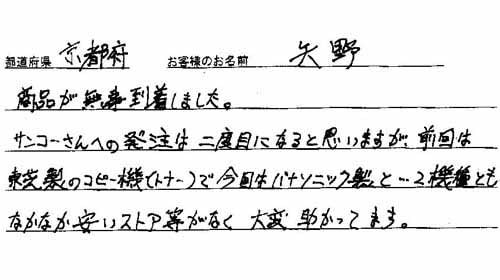 都道府県 京都府 お客様のお名前 矢野
商品が無事到着しました。
サンコーさんへの発注は二度目になると思いますが、前回は
東芝製のコピー機(トナー)で今回はパナソニック製と…2機種とも
なかなか安いストア等がなく大変助かってます。